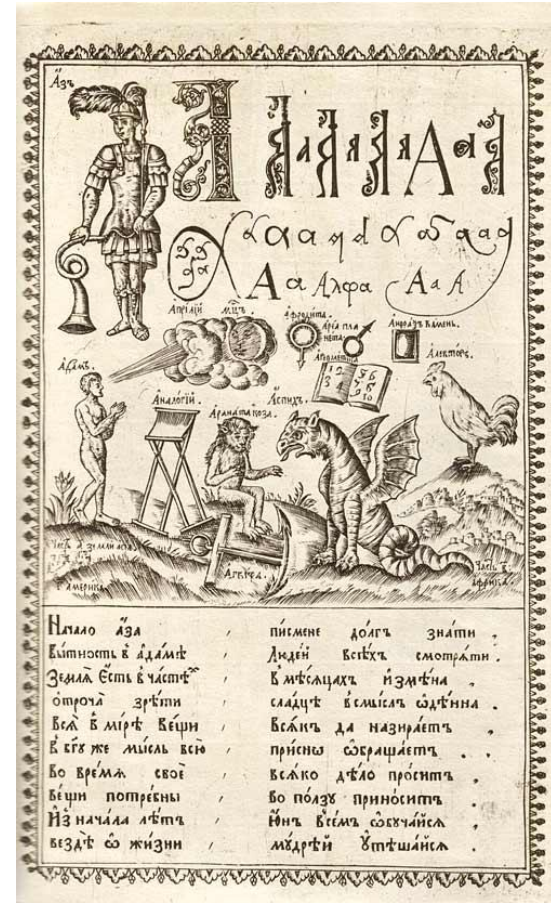 А҆́зъ
А А А Я Я А А А А
А а Алфа А а А
А҆прі́лїй мц҃ъ.
Афродита.
Арїа пла
нета
Ариѳметїка
1 2 3 5 6 7 8 9 10
Анѳраѯъ камень.
Алекторъ.
Адамъ.
Аналогїй.
Арапата коза.
Аспидъ.
Америка
Агкѵра.
Часть в
африка.
Начало а҆́за , пи́смене до́лгъ зна́ти .
бы́тность в̾ а҆да́мѣ , Люде́й всѣ́хъ смотря́ти .
Земля̀ Е҆́сть в̾ ча́стѣх , В̾ мѣ́сяцахъ и҆змѣ́на .
о҆троча̀ зрѣ́ти , сла́дцѣ в̾ смы́слъ ѡ҆дѣ́нна .
вся̑ в̾ мі́рѣ ве́щи , Вся́къ да назира́етъ .
в̾ бг҃у же мы́сль всю̀ , при́снѡ ѡ҆браща́етъ .
во вре́мѧ своѐ , вся́ко дѣ́ло про́ситъ .
ве́щи потре́бны , во по́лзу прино́ситъ .
И҆з̾ нача́ла лѣ́тъ , Ю҆́нъ всѣ́мъ ѡ҆буча́йся .
вездѣ̀ ѡ҆ жи́зни , му́дрѣй ᲂу҆тѣша́йся .